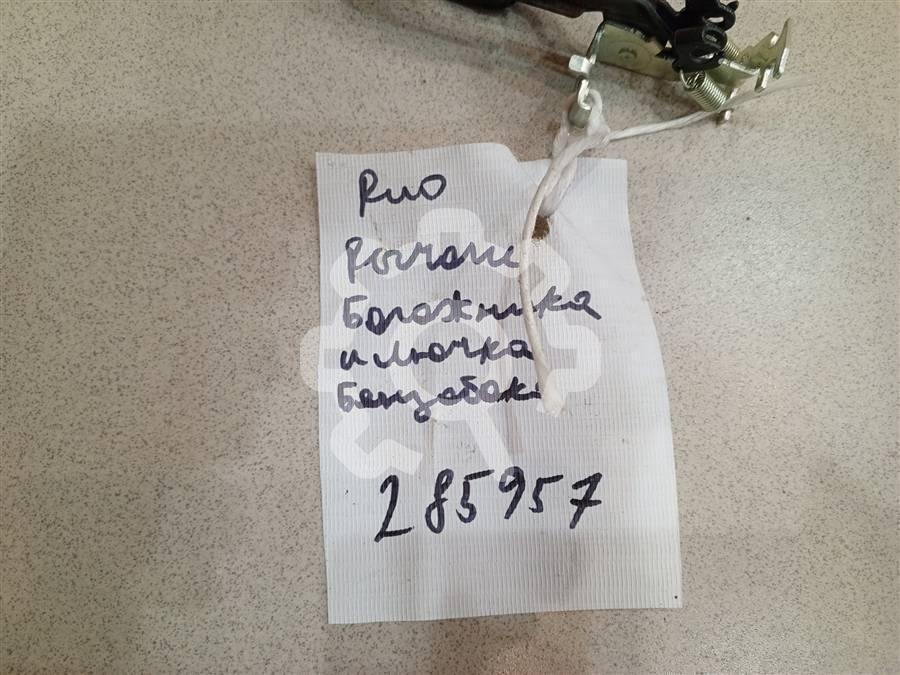 Rио
Рычаги
Багажника
и лючка
Бензобака
285957